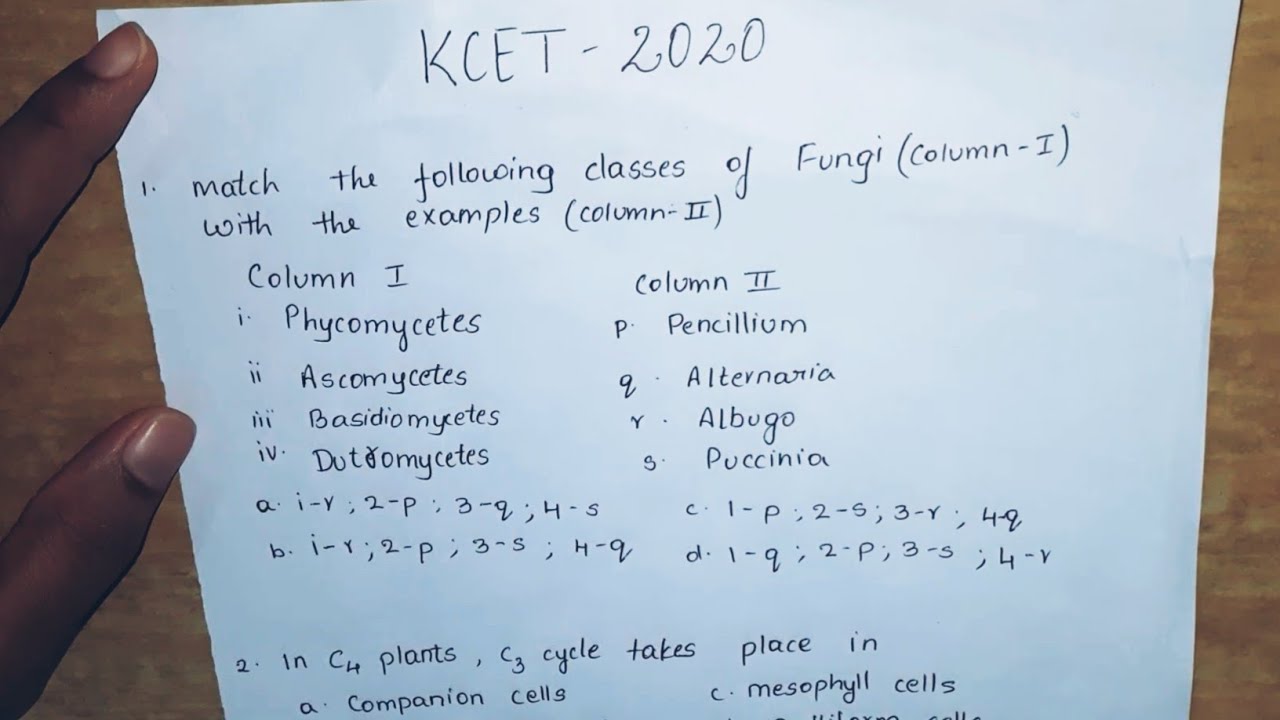 KCET - 2020
1. match the following classes of Fungi (column-I)
with the examples (column-II)
Column I column II
i. Phycomycetes p. Pencillium
ii Ascomycetes q. Alternaria
iii Basidiomycetes r. Albugo
iv. Dutromycetes s. Puccinia
a. i-r ; 2-p ; 3-q ; 4-s c. 1-p ; 2-s ; 3-r ; 4-q
b. i-r ; 2-p ; 3-s ; 4-q d. 1-q ; 2-p ; 3-s ; 4-r
2. In C4 plants, C3 cycle takes place in
a. Companion cells c. mesophyll cells